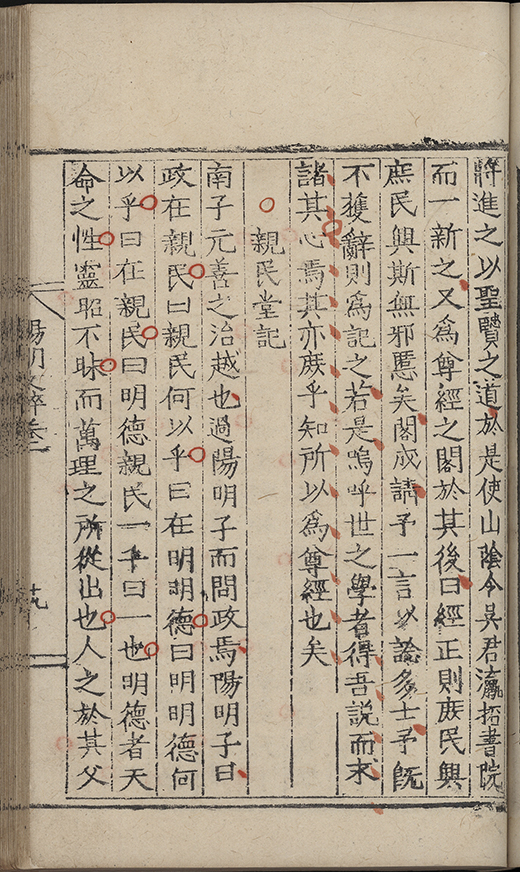 將進之以聖賢之道於是使山陰令吳君瀛拓書院
而一新之又爲尊經之閣於其後曰經正則庶民興
庶民興斯無邪慝矣閣成請予一言以諗多士予既
不獲辭則爲記之若是嗚呼世之學者得吾說而求
諸其心焉其亦庶乎知所以爲尊經也矣
親民堂記
南子元善之治越也過陽明子而問政焉陽明子曰
政在親民曰親民何以乎曰在明明德曰明明德何
以乎曰在親民曰明德親民一乎曰一也明德者天
命之性靈昭不昧而萬理之所從出也人之於其父
陽明文粹卷